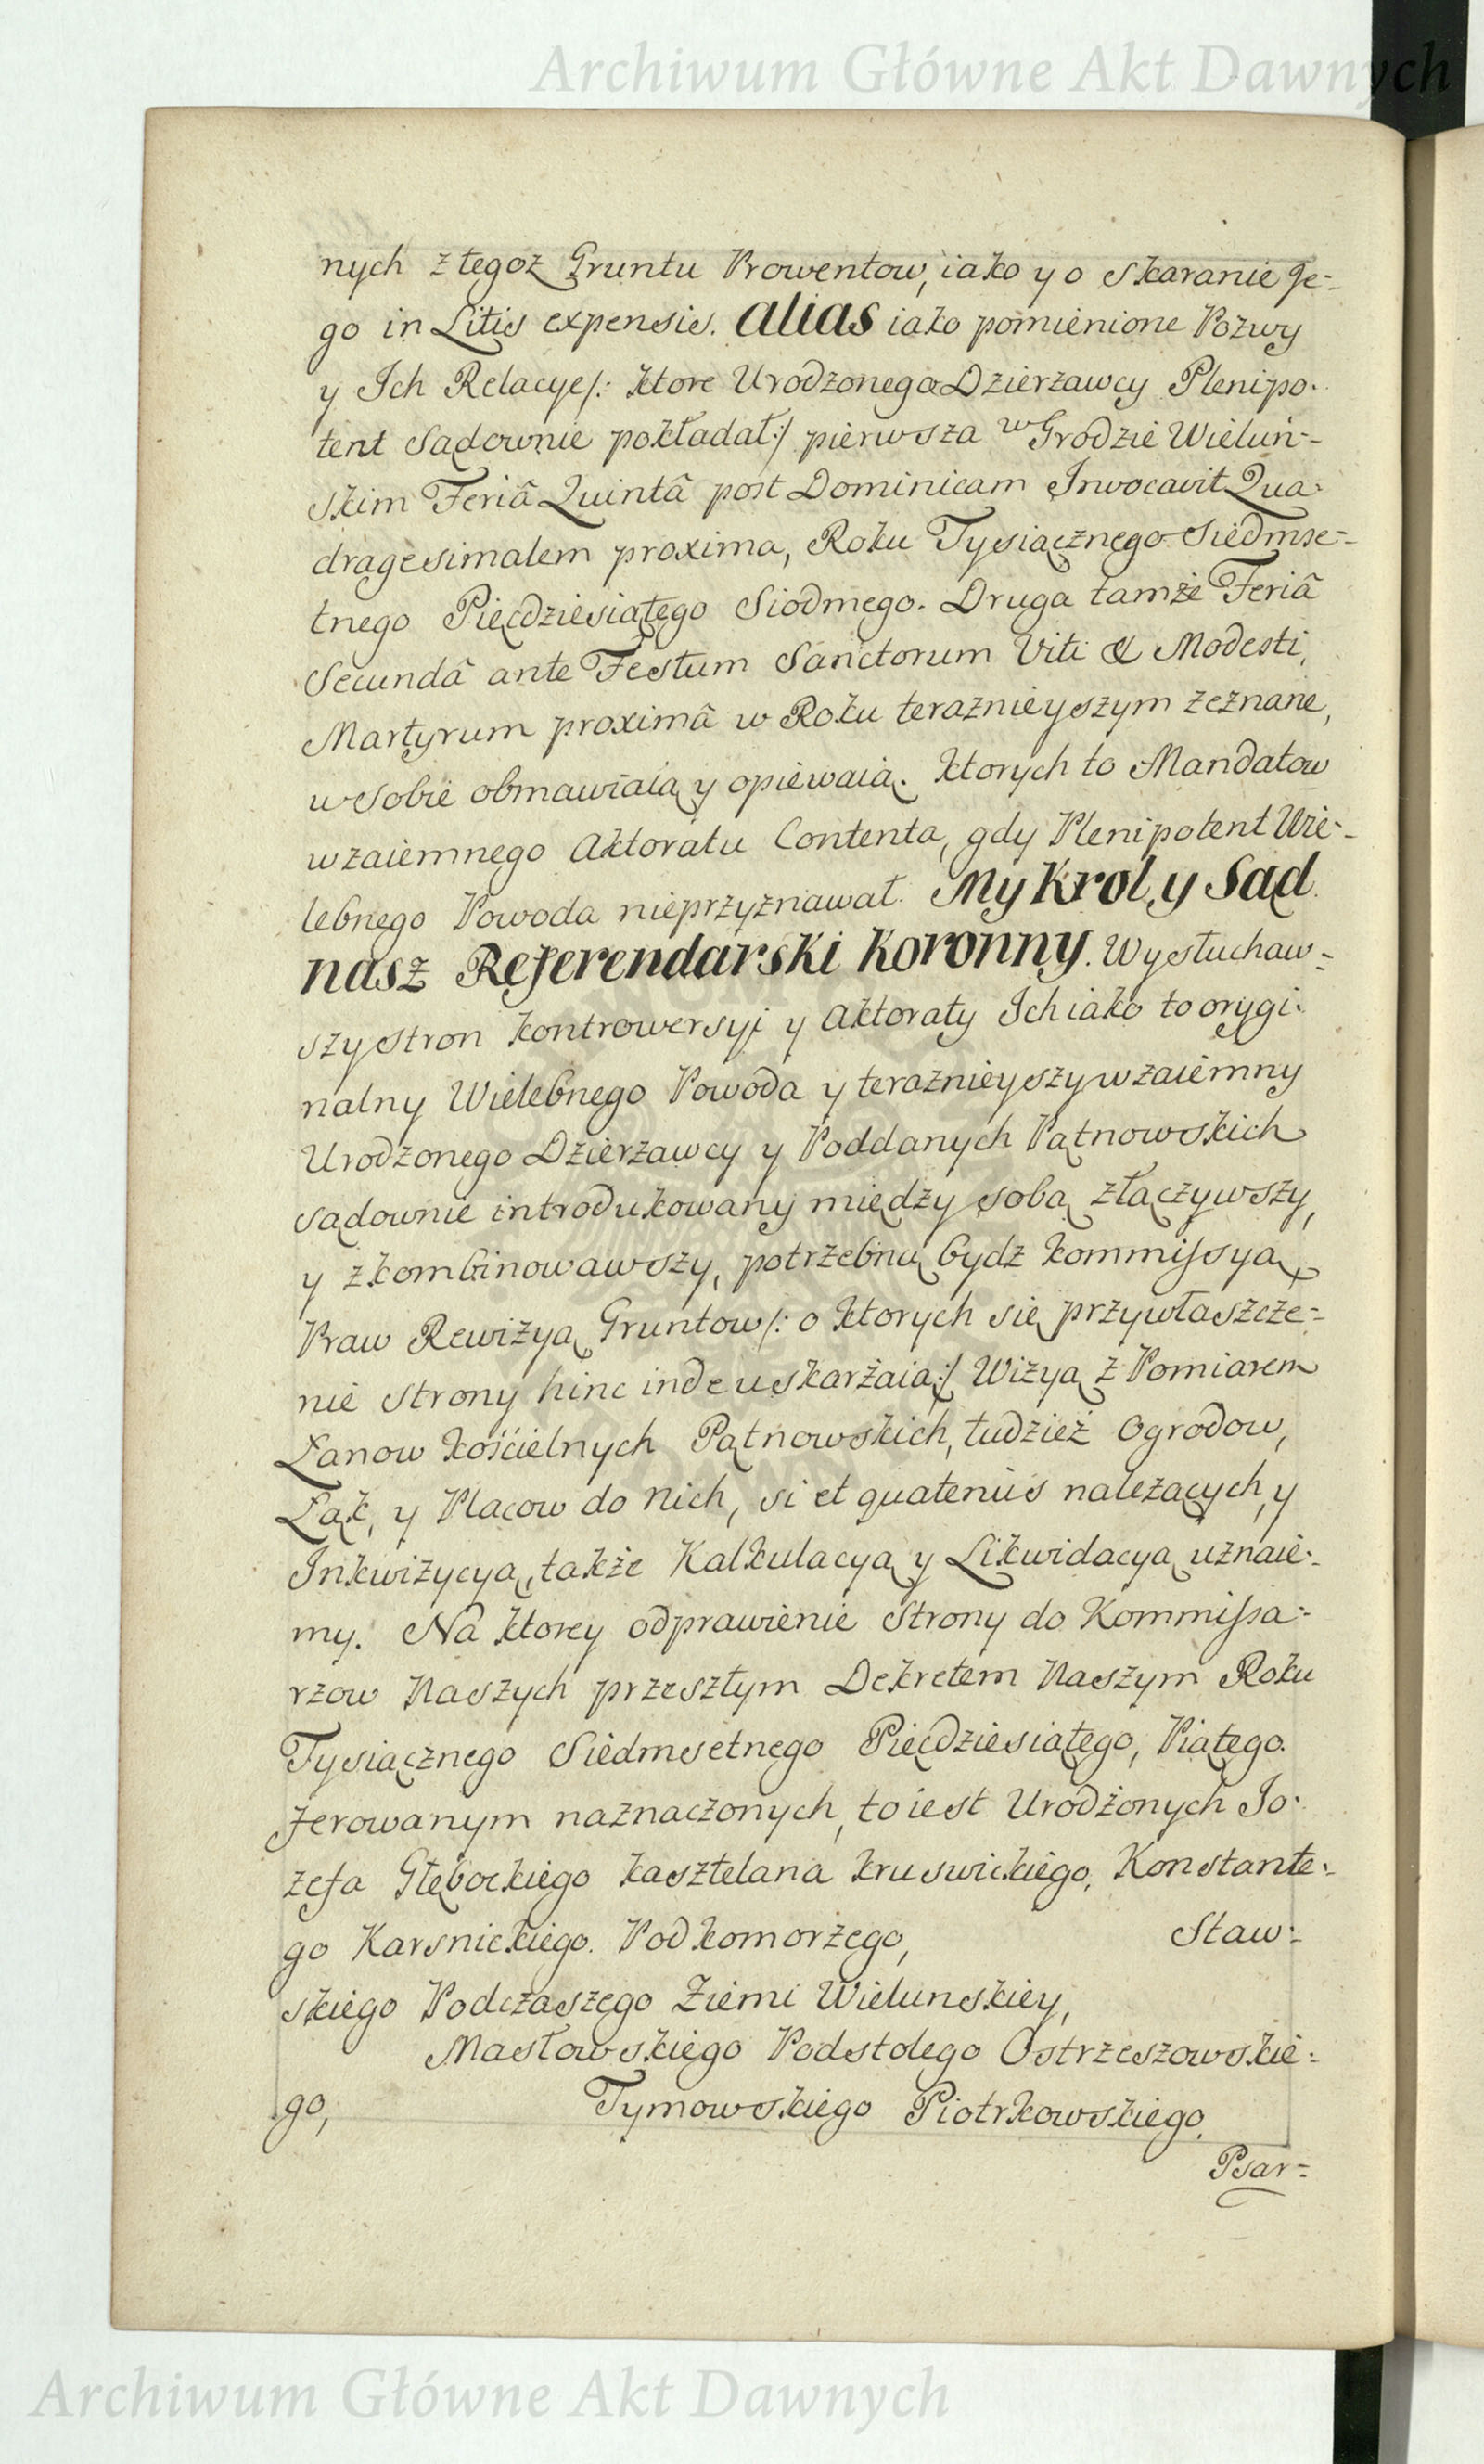 Archiwum Główne Akt Dawnych
nych z tegoż Gruntu Prowentow, iako y o skaranie Je-
go in Litis expensis. Alias iako pomienione Pozwy
y Ich Relacye/: ktore Urodzonego Dzierżawcy Plenipo-
tent Sądownie pokładał:/ pierwsza w Grodzie Wieluń-
skim Feriâ Quintâ post Dominicam Invocavit Qua-
dragesimalem proxima, Roku Tysiącznego Siedmse-
tnego Pięcdziesiątego Siodmego. Druga tamże Feriâ
Secundâ ante Festum Sanctorum Viti & Modesti,
Martyrum proximâ w Roku teraznieyszym zeznane,
w sobie obmawiaią y opiewaią. Ktorych to Mandatow
wzaiemnego Aktoratu Contenta, gdy Plenipotent Wie-
lebnego Powoda nieprzyznawał. My Krol y Sąd
nasz Referendarski Koronny. Wysłuchaw-
szy stron kontrowersyi y Aktoraty Ich iako to orygi-
nalny Wielebnego Powoda y teraznieyszy wzaiemny
Urodzonego Dzierżawcy y Poddanych Pątnowskich
sądownie introdukowany między sobą złączywszy,
y zkombinowawszy, potrzebną bydz kommissyą,
Praw Rewizyą Gruntow/: o ktorych się przywłaszcze-
nie strony hinc inde uskarżaią:/ Wizyą z Pomiarem
Łanow kościelnych Pątnowskich, tudzież Ogrodow,
Łąk, y Placow do nich, si et quatenus należących, y
Inkwizycyą, także Kalkulacyą y Likwidacyą uznaie-
my. Na ktorey odprawienie Strony do Kommissa-
rzow Naszych przeszłym Dekretem Naszym Roku
Tysiącznego Siedmsetnego Pięcdziesiątego, Piątego
ferowanym naznaczonych, to iest Urodzonych Jo-
zefa Głębockiego kasztelana kruswickiego, Konstante-
go Karsnickiego Podkomorzego, Staw-
skiego Podczaszego Ziemi Wielunskiey,
Masłowskiego Podstolego Ostrzeszowskie-
go, Tymowskiego Piotrkowskiego,
Psar-
Archiwum Główne Akt Dawnych